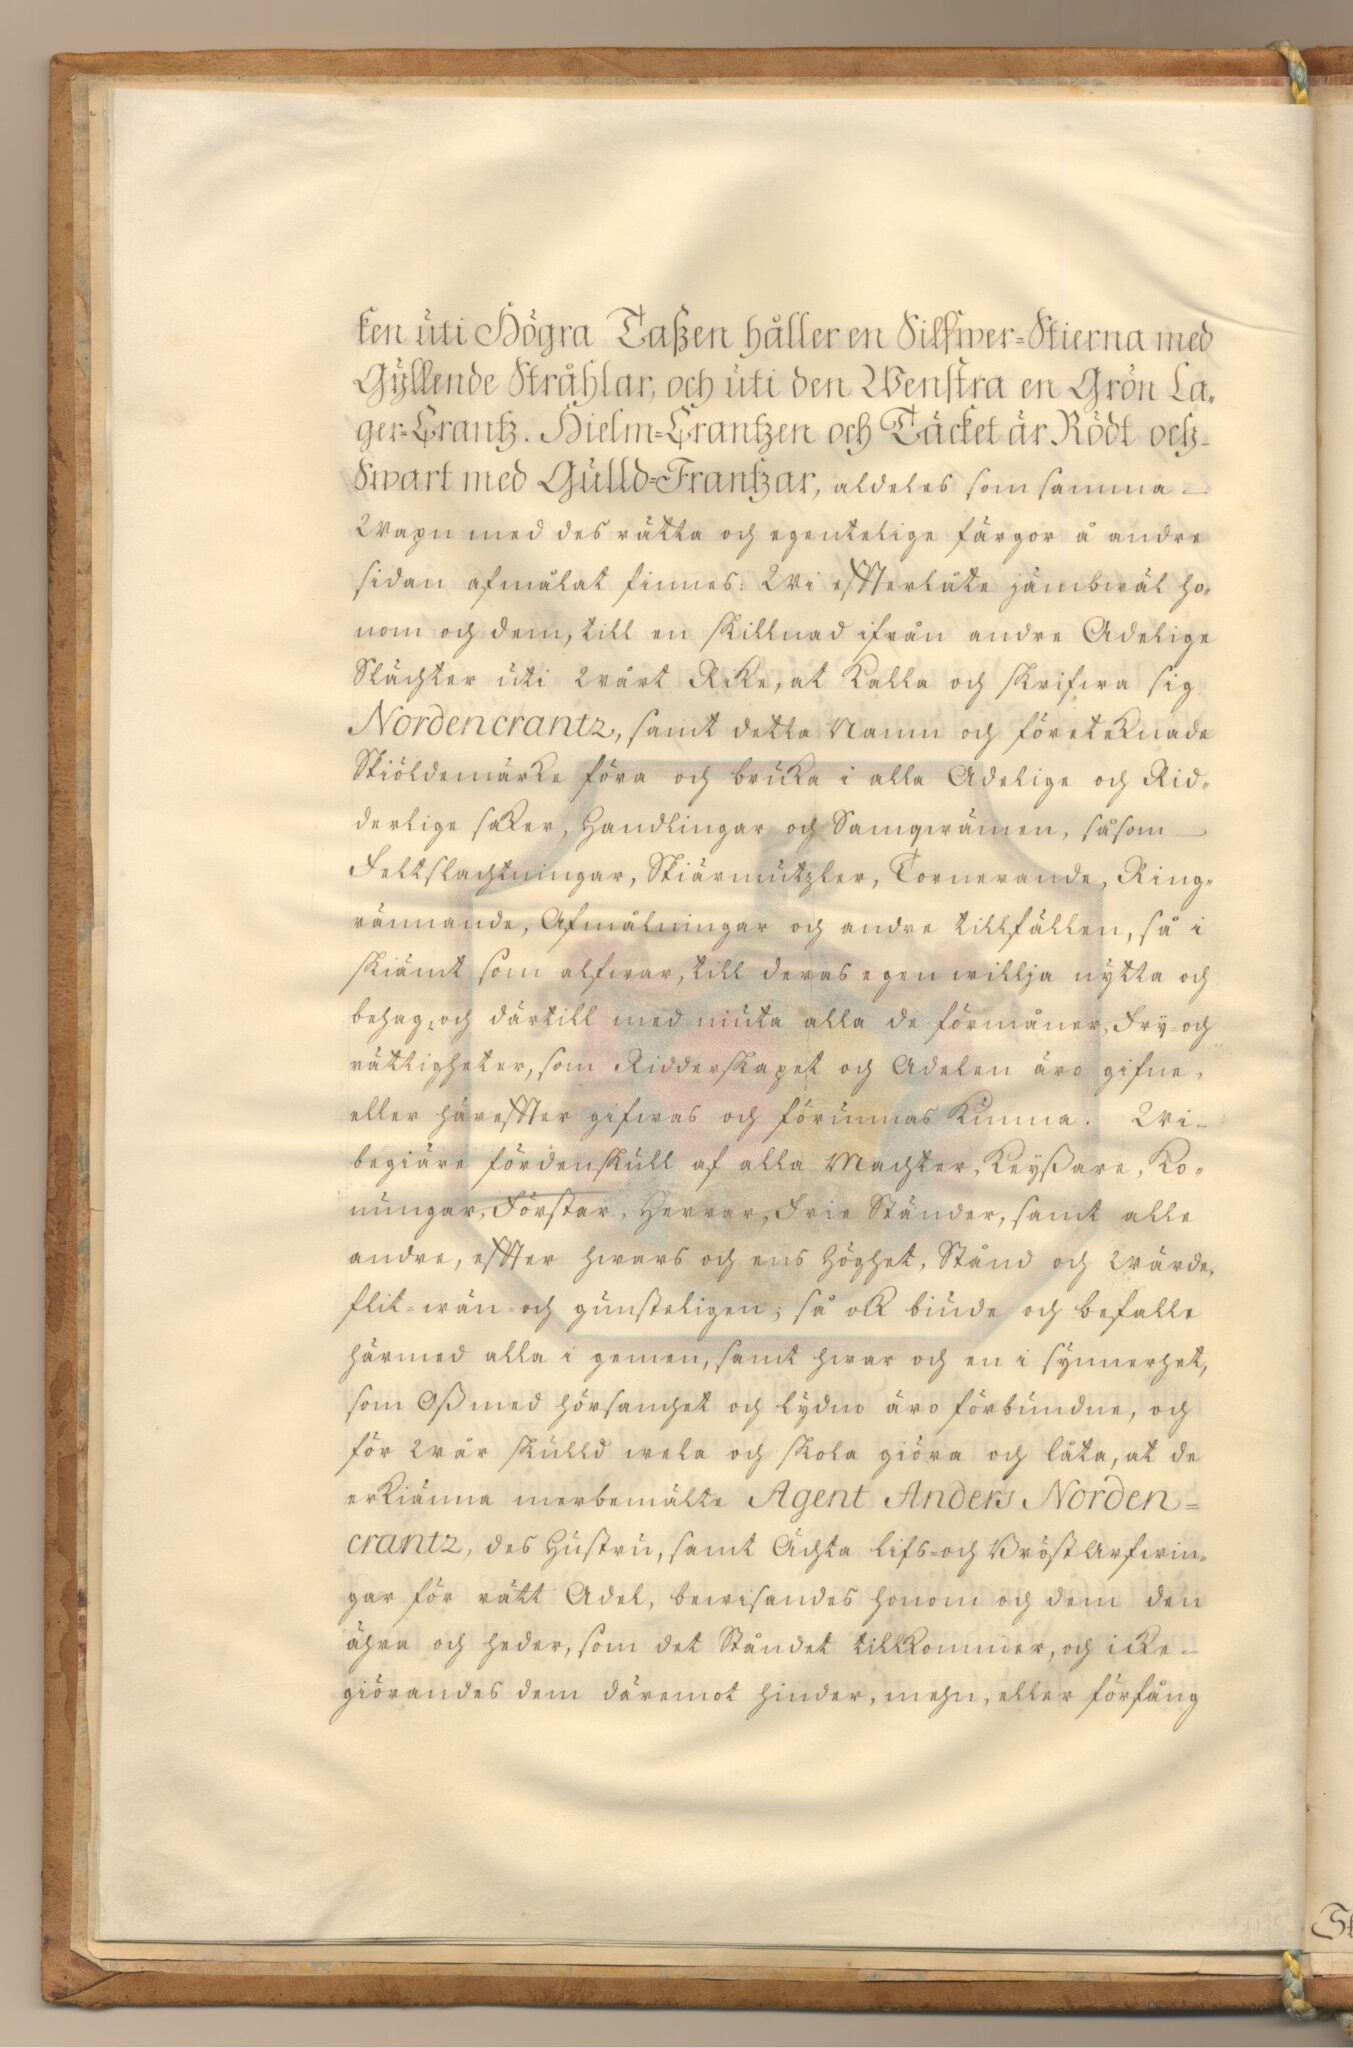 ken uti Högra Taßen håller en Silfwer=Stierna med
Gyllende Stråhlar, och uti den Wenstra en Grön La=
ger=Crantz. Hielm=Crantzen och Täcket är Rödt och
Swart med Gulld=Frantzar, aldeles som samma
Wapn med des rätta och egentelige färgor å andre
sidan afmålat finnes: Wi effterlåte jämbwäl ho=
nom och dem, till en skillnad ifrån andre Adelige
Slächter uti Wårt Rike, at kalla och skrifwa sig
Nordencrantz, samt detta Namn och företeknade
Skiöldemärke föra och bruka i alla Adelige och Rid=
derlige saker, Handlingar och Samqwämen, såsom
Feltslachtningar, Skiärmützler, Tornerande, Ring=
rännande, Afmålningar och andre tillfällen, så i
skiämt som alfwar, till deras egen willja nytta och
behag, och därtill med niuta alla de förmåner, Fry=och
rättigheter, som Ridderskapet och Adelen äro gifne,
eller häreffter gifwas och förunnas kunna. Wi
begiäre fördenskull af alla Machter, Keyßare, Ko=
nungar, Förstar, Herrar, Frie Ständer, samt alle
andre, effter hwars och ens Höghet, Stånd och Wärde,
flit=wän=och gunsteligen; så ock biude och befalle
härmed alla i gemen, samt hwar och en i synnerhet,
som Oß med hörsamhet och lydno äro förbundne, och
för Wår skulld wela och skola giöra och låta, at de
erkiänna merbemälte Agent Anders Norden=
crantz, des Hustru, samt Ächta lifs=och Bröst Arfwin=
gar för rätt Adel, bewisandes honom och dem den
ähra och heder, som det Ståndet tillkommer, och icke
giörandes dem däremot hinder, mehn, eller förfång